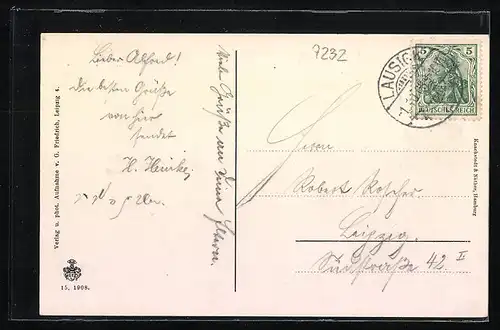 Lieber Alfred!
die besten Grüße
von hier
sendet
H. Heinke
Viele Grüße an Deine Eltern.
7232
LAUSIGK
5 5
DEUTSCHES REICH
Herrn
Robert
Leipzig.
Südstraße 42 II
Verlag u. phot. Aufnahme v. G. Friedrich, Leipzig 4.
15, 1908.
Knackstedt & Näther, Hamburg